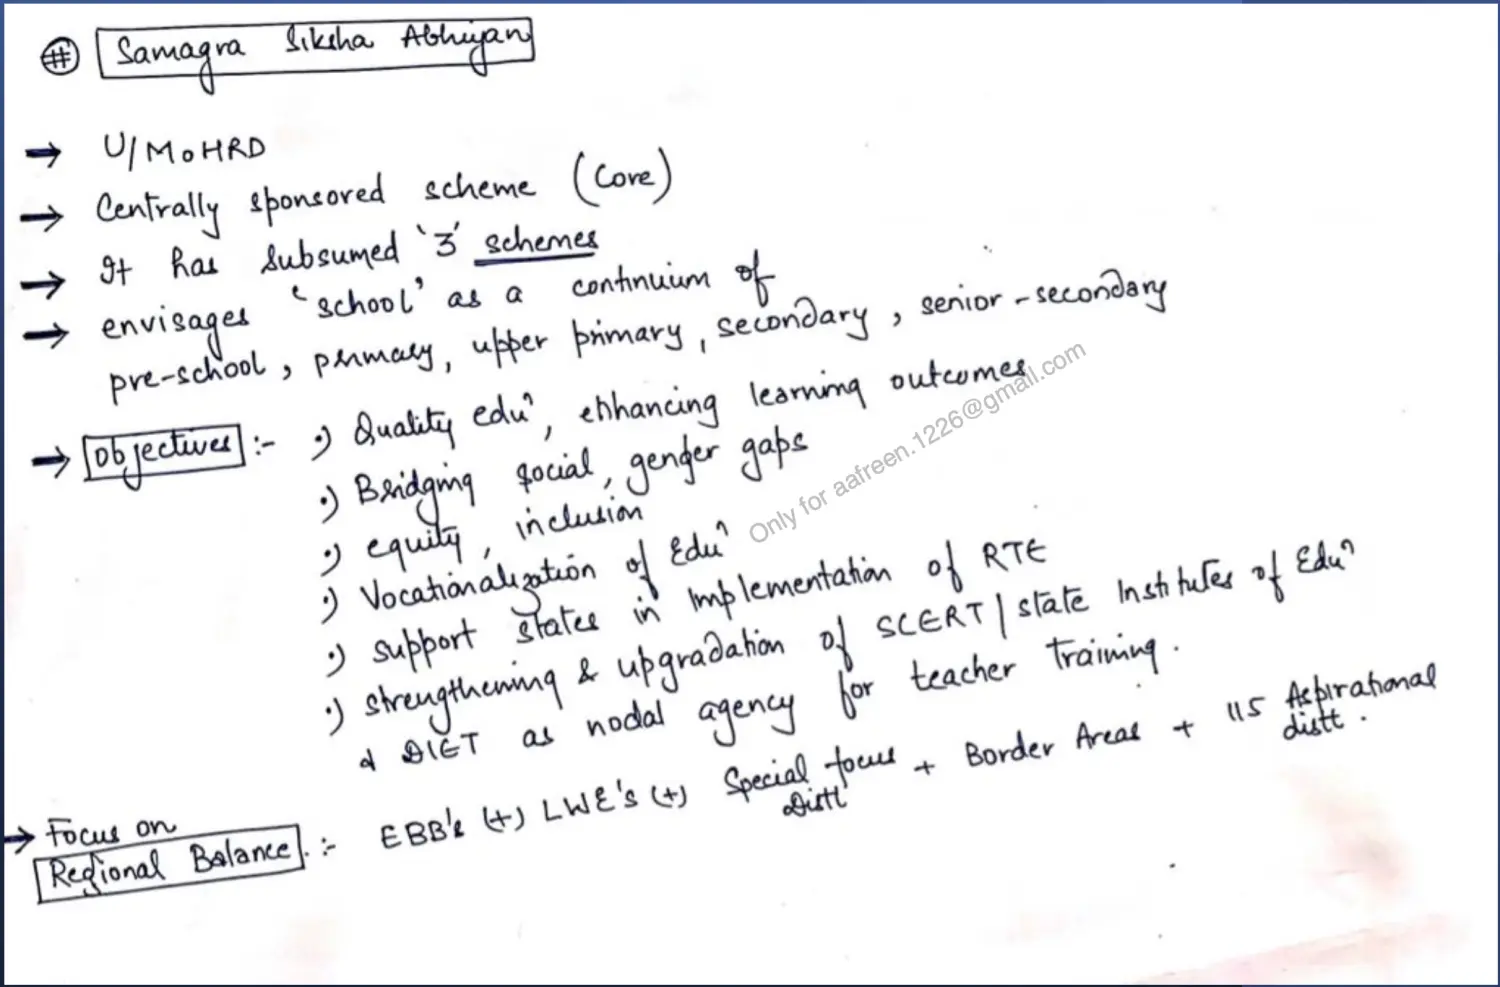 # Samagra Siksha Abhiyan
→ U/MoHRD
→ Centrally sponsored scheme (Core)
→ It has subsumed '3' schemes
→ envisages 'school' as a continuium of
pre-school, primary, upper primary, secondary, senior-secondary
→ Objectives :- •) Quality eduⁿ, enhancing learning outcomes
•) Bridging social, gender gaps
•) equity, inclusion
•) Vocationalization of Eduⁿ
•) support states in implementation of RTE
•) strengthening & upgradation of SCERT/state Institutes of Eduⁿ
& DIET as nodal agency for teacher training.
→ Focus on
Regional Balance :- EBB's (+) LWE's (+) Special focus Distt + Border Areas + 115 Aspirational distt.
Only for aafreen.1226@gmail.com